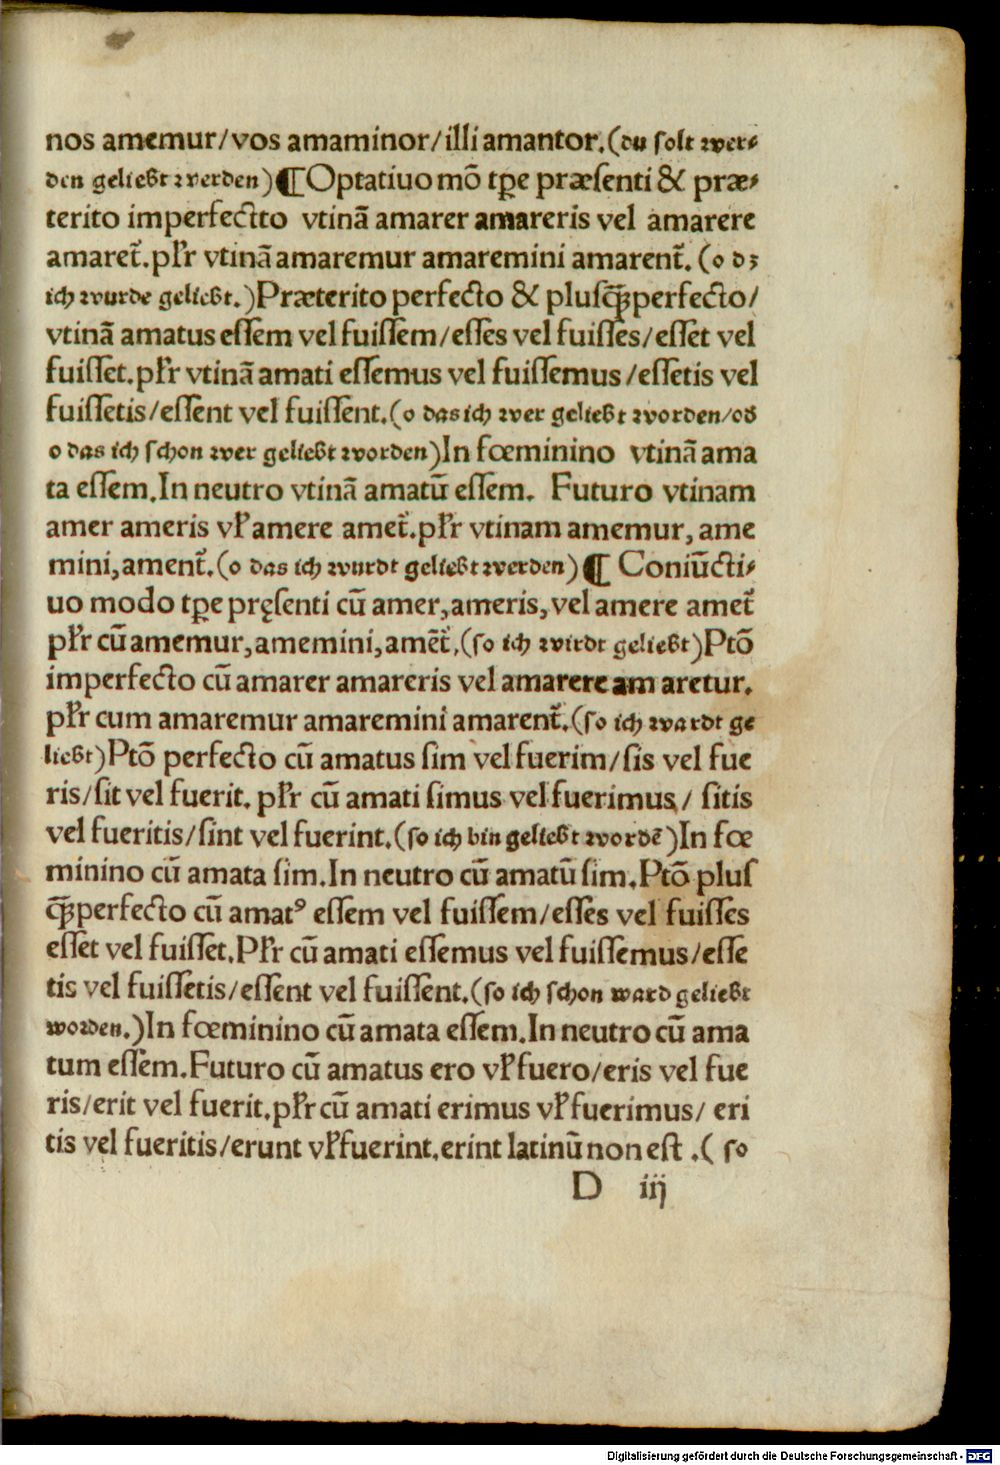 nos amemur/vos amaminor/illi amantor.(du solt wer⸗
den geliebt werden)¶Optatiuo mõ tꝑe præsenti & præ⸗
terito imperfectto vtinã amarer amareris vel amarere
amaret̃.płr vtinã amaremur amaremini amarent̃.(o dz
ich wurde geliebt.)Præterito perfecto & plusꝙ̃perfecto/
vtinã amatus essem vel fuissem/esses vel fuisses/esset vel
fuisset.płr vtinã amati essemus vel fuissemus/essetis vel
fuissetis/essent vel fuissent.(o das ich wer geliebt worden/od
o das ich schon wer geliebt worden)In fœminino vtinã ama
ta essem.In neutro vtinã amatũ essem. Futuro vtinam
amer ameris vł amere amet̃.płr vtinam amemur, ame
mini,ament̃.(o das ich wurdt geliebt werden)¶ Coniũcti⸗
uo modo tꝑe pręsenti cũ amer,ameris,vel amere amet̃
płr cũ amemur,amemini,amẽt̃,(so ich wirdt geliebt)Ptõ
imperfecto cũ amarer amareris vel amarere am aretur.
płr cum amaremur amaremini amarent̃.(so ich wardt ge
liebt)Ptõ perfecto cũ amatus sim vel fuerim/sis vel fue
ris/sit vel fuerit. płr cũ amati simus vel fuerimus/ sitis
vel fueritis/sint vel fuerint.(so ich bin geliebt wordẽ)In fœ
minino cũ amata sim.In neutro cũ amatũ sim.Ptõ plus
ꝙ̃perfecto cũ amatꝰ essem vel fuissem/esses vel fuisses
esset vel fuisset.Płr cũ amati essemus vel fuissemus/esse
tis vel fuissetis/essent vel fuissent.(so ich schon ward geliebt
worden.)In fœminino cũ amata essem.In neutro cũ ama
tum essem.Futuro cũ amatus ero vł fuero/eris vel fue
ris/erit vel fuerit.płr cũ amati erimus vł fuerimus/ eri
tis vel fueritis/erunt vł fuerint.erint latinũ non est .( so
D iij
Digitalisierung gefördert durch die Deutsche Forschungsgemeinschaft - DFG